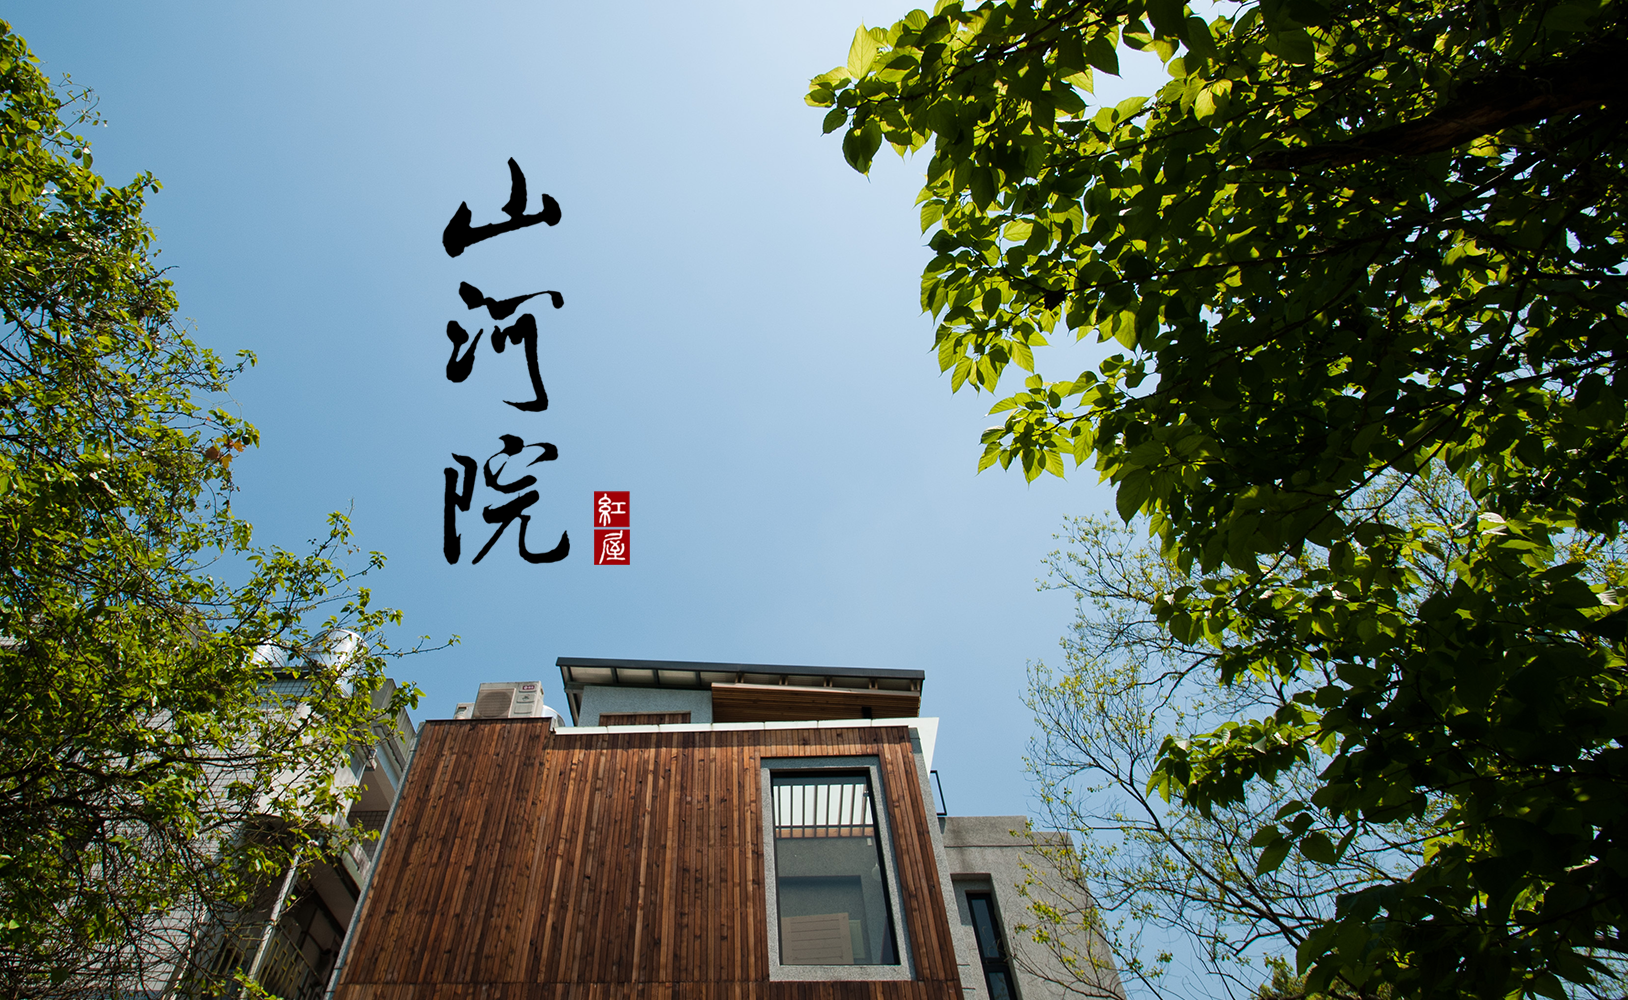 山河院
紅屋